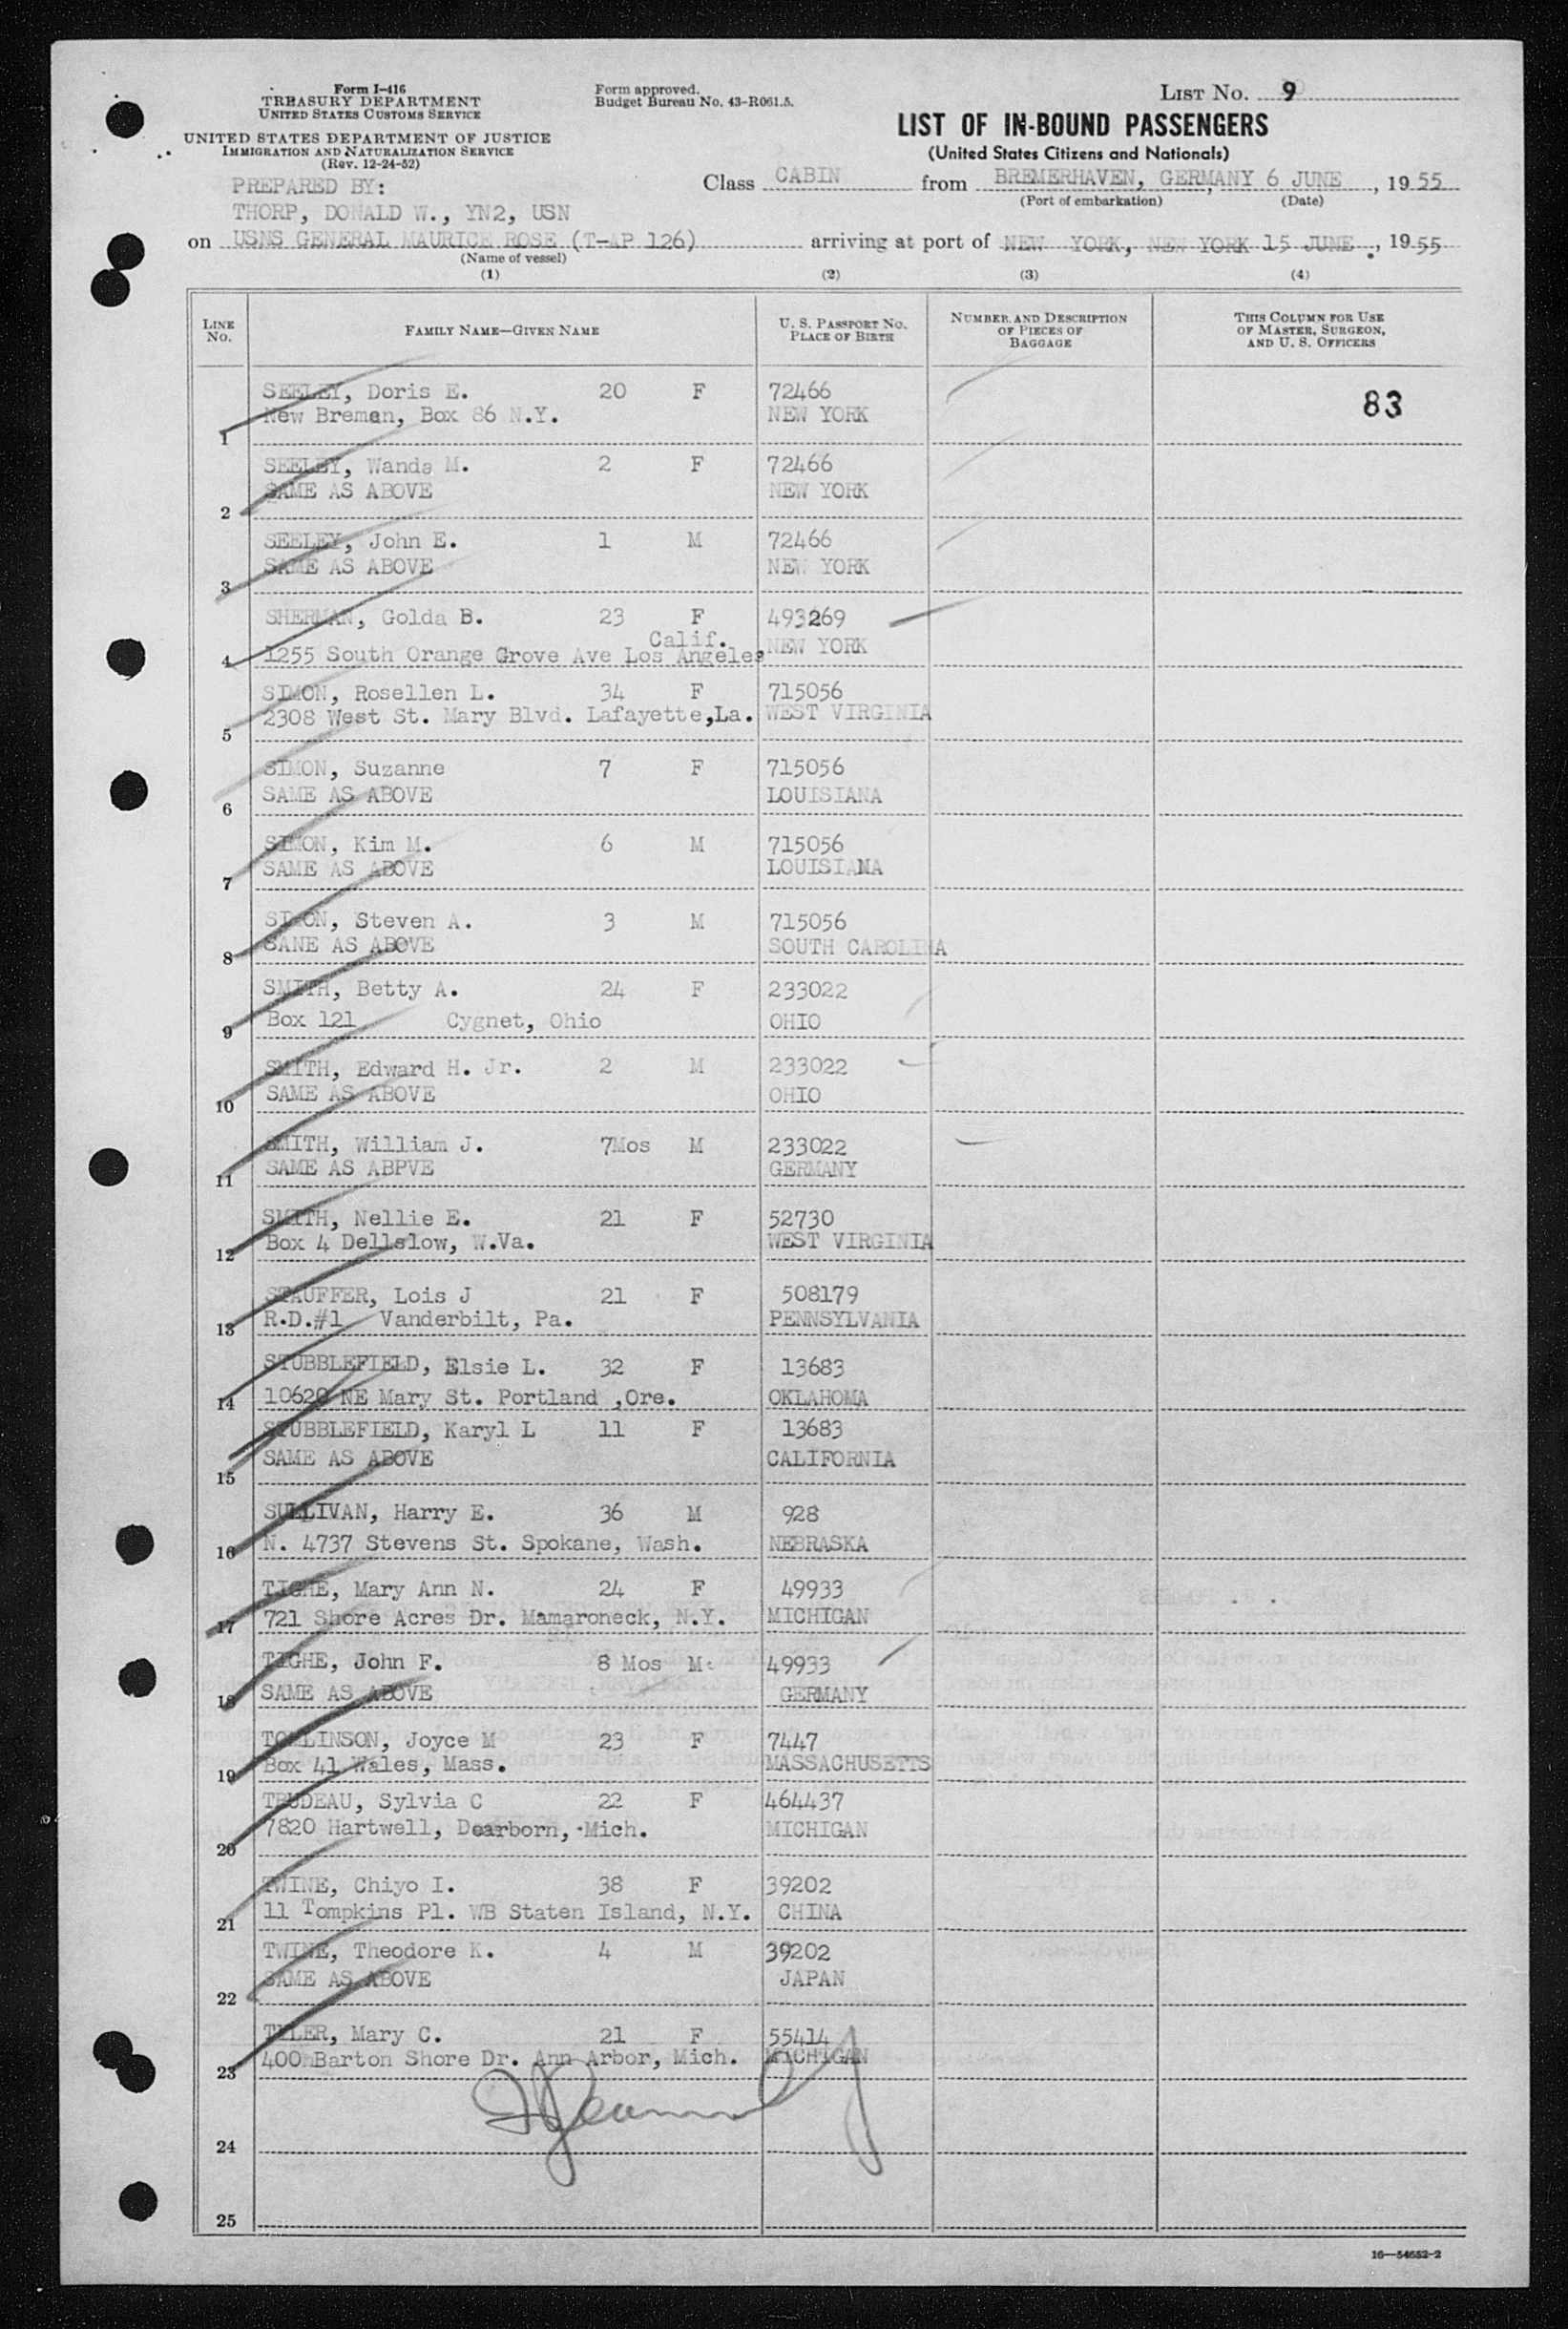 Form I-416
TREASURY DEPARTMENT
UNITED STATES CUSTOMS SERVICE
UNITED STATES DEPARTMENT OF JUSTICE
IMMIGRATION AND NATURALIZATION SERVICE
(Rev. 12-24-52)
Form approved.
Budget Bureau No. 43-R061.5.
LIST NO. 9
LIST OF IN-BOUND PASSENGERS
(United States Citizens and Nationals)
PREPARED BY:
THORP, DONALD W., YN2, USN
Class CABIN from BREMERHAVEN, GERMANY, 6 JUNE, 1955
(Port of embarkation) (Date)
on USNS GENERAL MAURICE ROSE (T-AP 126) arriving at port of NEW YORK, NEW YORK 15 JUNE, 1955
(Name of vessel)
(1) (2) (3) (4)
LINE NO. FAMILY NAME—GIVEN NAME U. S. PASSPORT NO. PLACE OF BIRTH NUMBER AND DESCRIPTION OF PIECES OF BAGGAGE THIS COLUMN FOR USE OF MASTER, SURGEON, AND U. S. OFFICERS
SEELEY, Doris E. 20 F 72466 83
1 New Bremen, Box 86 N.Y. NEW YORK
SEELEY, Wanda M. 2 F 72466
2 SAME AS ABOVE NEW YORK
SEELEY, John E. 1 M 72466
3 SAME AS ABOVE NEW YORK
SHERMAN, Golda B. 23 F 493269
Calif.
4 1255 South Orange Grove Ave Los Angeles NEW YORK
SIMON, Rosellen L. 34 F 715056
5 2308 West St. Mary Blvd. Lafayette,La. WEST VIRGINIA
SIMON, Suzanne 7 F 715056
6 SAME AS ABOVE LOUISIANA
SIMON, Kim M. 6 M 715056
7 SAME AS ABOVE LOUISIANA
SIMON, Steven A. 3 M 715056
8 SANE AS ABOVE SOUTH CAROLINA
SMITH, Betty A. 24 F 233022
9 Box 121 Cygnet, Ohio OHIO
SMITH, Edward H. Jr. 2 M 233022
10 SAME AS ABOVE OHIO
SMITH, William J. 7Mos M 233022
11 SAME AS ABPVE GERMANY
SMITH, Nellie E. 21 F 52730
12 Box 4 Dellslow, W.Va. WEST VIRGINIA
STAUFFER, Lois J 21 F 508179
13 R.D.#1 Vanderbilt, Pa. PENNSYLVANIA
STUBBLEFIELD, Elsie L. 32 F 13683
14 10620 NE Mary St. Portland ,Ore. OKLAHOMA
STUBBLEFIELD, Karyl L 11 F 13683
15 SAME AS ABOVE CALIFORNIA
SULLIVAN, Harry E. 36 M 928
16 N. 4737 Stevens St. Spokane, Wash. NEBRASKA
TIGHE, Mary Ann N. 24 F 49933
17 721 Shore Acres Dr. Mamaroneck, N.Y. MICHIGAN
TIGHE, John F. 8 Mos M 49933
18 SAME AS ABOVE GERMANY
TOMLINSON, Joyce M 23 F 7447
19 Box 41 Wales, Mass. MASSACHUSETTS
TRUDEAU, Sylvia C 22 F 464437
20 7820 Hartwell, Dearborn, Mich. MICHIGAN
TWINE, Chiyo I. 38 F 39202
21 11 Tompkins Pl. WB Staten Island, N.Y. CHINA
TWINE, Theodore K. 4 M 39202
22 SAME AS ABOVE JAPAN
TYLER, Mary C. 21 F 55414
23 400 Barton Shore Dr. Ann Arbor, Mich. MICHIGAN
24
25
16—54652-2